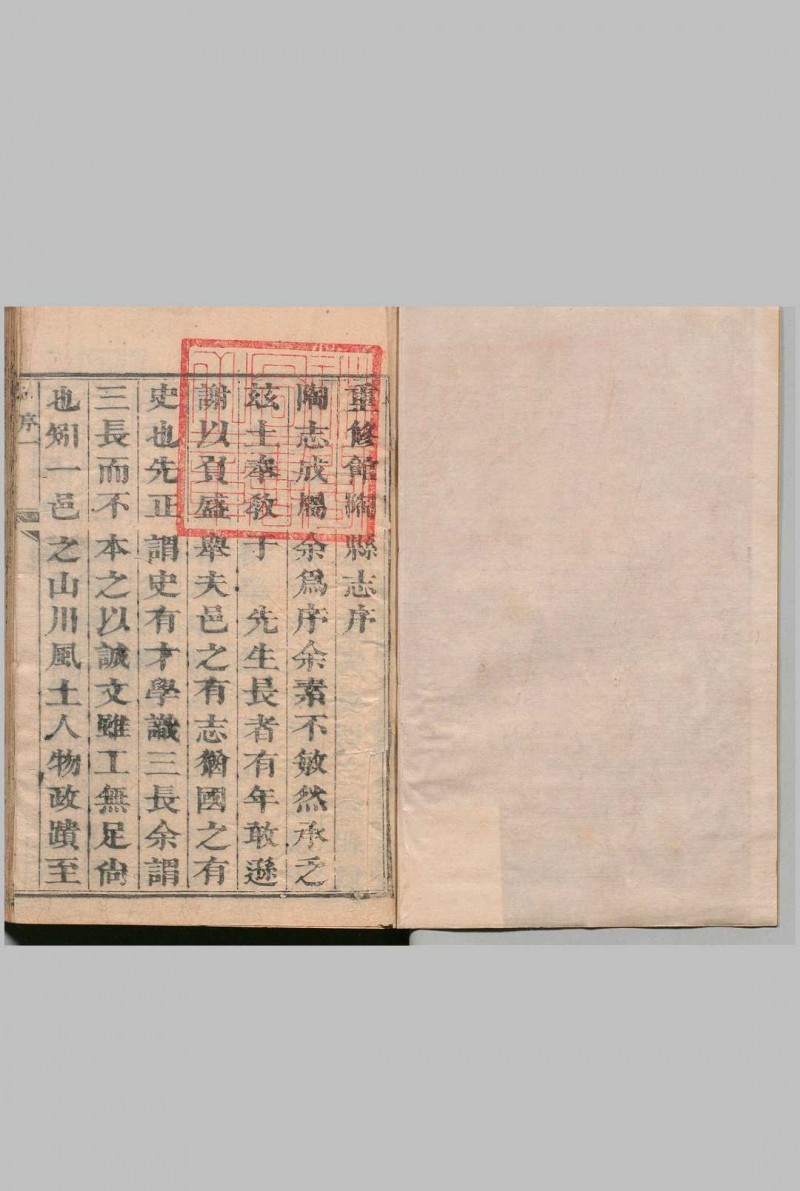 重修館陶縣志序
陶志成屬余爲序余素不敏然承乏
玆土奉教于　先生長者有年敢遜
謝以負盛舉夫邑之有志猶國之有
史也先正謂史有才學識三長余謂
三長而不本之以誠文雖工無足尙
也矧一邑之山川風土人物政蹟至
序一